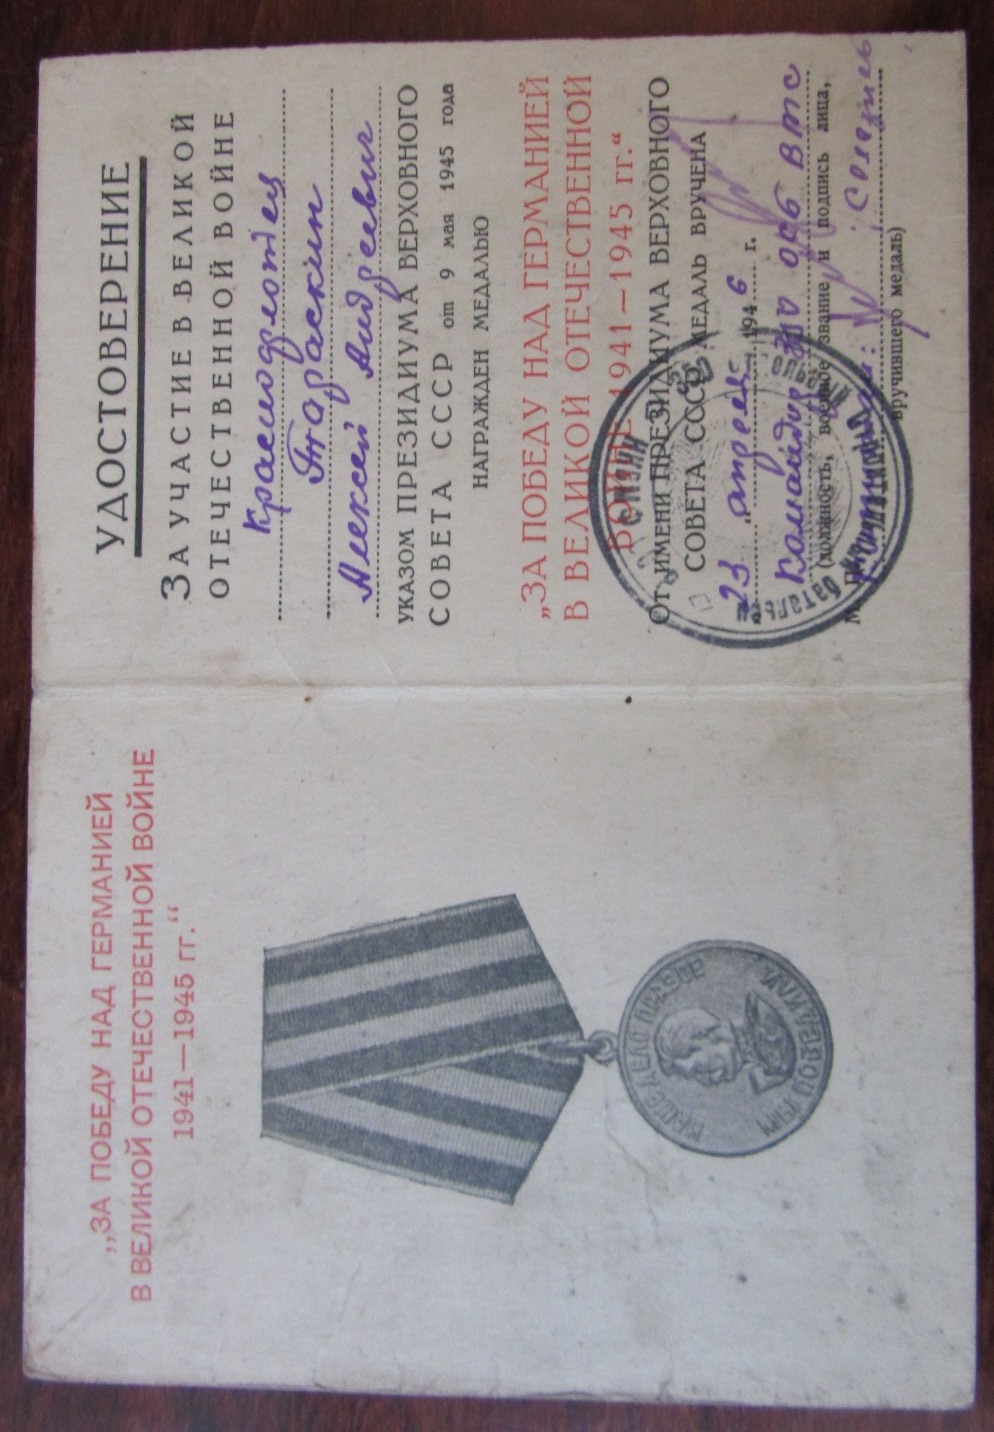 „ЗА ПОБЕДУ НАД ГЕРМАНИЕЙ
В ВЕЛИКОЙ ОТЕЧЕСТВЕННОЙ ВОЙНЕ
1941—1945 гг.“
НАШЕ ДЕЛО ПРАВОЕ
МЫ ПОБЕДИЛИ
УДОСТОВЕРЕНИЕ
ЗА УЧАСТИЕ В ВЕЛИКОЙ
ОТЕЧЕСТВЕННОЙ ВОЙНЕ
Краснофлотец
Тараскин
Алексей Андреевич
УКАЗОМ ПРЕЗИДИУМА ВЕРХОВНОГО
СОВЕТА СССР от 9 мая 1945 года
НАГРАЖДЕН МЕДАЛЬЮ
„ЗА ПОБЕДУ НАД ГЕРМАНИЕЙ
В ВЕЛИКОЙ ОТЕЧЕСТВЕННОЙ
ВОЙНЕ 1941—1945 гг.“
ОТ ИМЕНИ ПРЕЗИДИУМА ВЕРХОВНОГО
СОВЕТА СССР МЕДАЛЬ ВРУЧЕНА
23 апреля 1946 г.
Командир
(должность, военное звание и подпись лица,
М. П.
вручившего медаль)